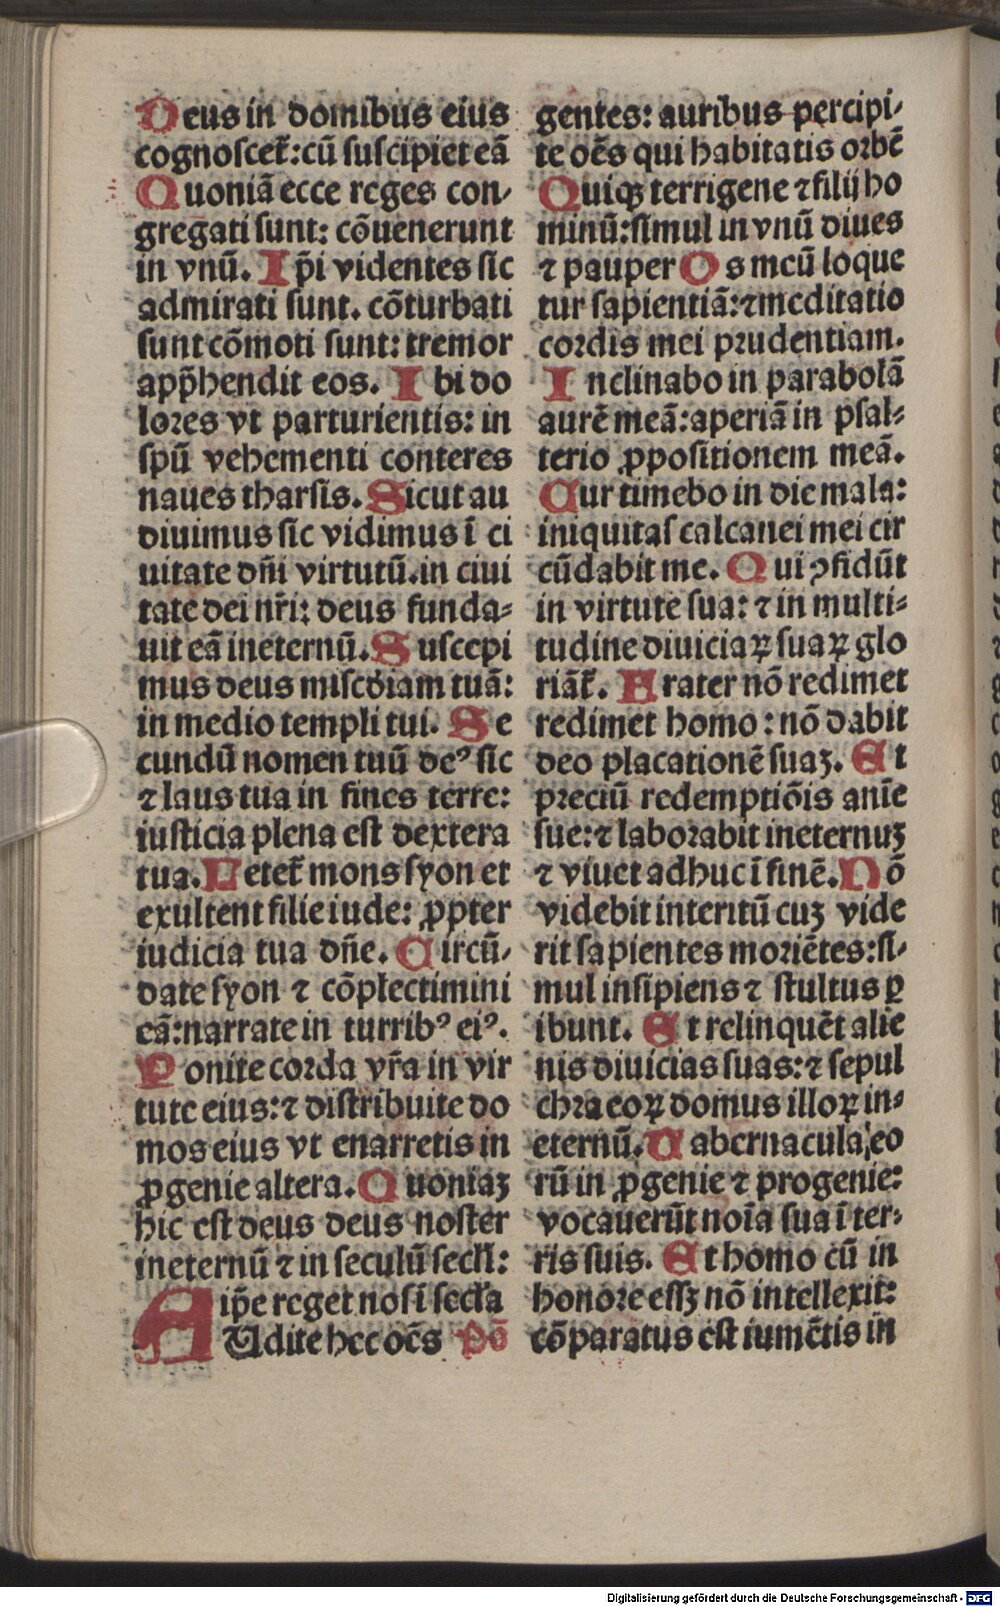 Deus in domibus eius
cognoscet᷑: cū suscipiet eā
Quoniā ecce reges con⸗
gregati sunt: cōuenerunt
in vnū. Ip̄i videntes sic
admirati sunt. cōturbati
sunt cōmoti sunt: tremor
app̄hendit eos. Ibi do
lores vt parturientis: in
spū vehementi conteres
naues tharsis. Sicut au
diuimus sic vidimus ī ci
uitate dn̄i virtutū. in ciui
tate dei nr̄i: deus funda⸗
uit eā ineternū. Suscepi
mus deus misc̄diam tuā:
in medio templi tui. Se
cundū nomen tuū deꝰ sic
⁊ laus tua in fines terre:
iusticia plena est dextera
tua. Letet᷑ mons syon et
exultent filie iude: ꝓpter
iudicia tua dn̄e. Circū⸗
date syon ⁊ cōplectimini
eā: narrate in turribꝰ eiꝰ.
Ponite corda vr̄a in vir
tute eius: ⁊ distribuite do
mos eius vt enarretis in
ꝓgenie altera. Quoniaꝫ
hic est deus deus noster
ineternū ⁊ in seculū secłi:
ip̄e reget nos ī secła
AUdite hec oēs pō
gentes: auribus percipi⸗
te oēs qui habitatis orbē
Quiqꝫ terrigene ⁊ filij ho
minū: simul in vnū diues
⁊ pauper Os meū loque
tur sapientiā: ⁊ meditatio
cordis mei prudentiam.
Inclinabo in parabolā
aurē meā: aperiā in psal⸗
terio ꝓpositionem meā.
Cur timebo in die mala:
iniquitas calcanei mei cir
cūdabit me. Qui ꝯfidūt
in virtute sua: ⁊ in multi⸗
tudine diuiciaꝝ suaꝝ glo
riāt᷑. Frater nō redimet
redimet homo: nō dabit
deo placationē suaꝫ. Et
preciū redemptiōis anīe
sue: ⁊ laborabit ineternuꝫ
⁊ viuet adhuc ī finē. Nō
videbit interitū cuꝫ vide
rit sapientes moriētes: si⸗
mul insipiens ⁊ stultus ꝑ
ibunt. Et relinquēt alie
nis diuicias suas: ⁊ sepul
chra eoꝝ domus illoꝝ in⸗
eternū. Tabernacula eo
rū in ꝓgenie ⁊ progenie:
vocauerūt noīa sua ī ter⸗
ris suis. Et homo cū in
honore essꝫ nō intellexit:
cōparatus est iumētis in
Digitalisierung gefördert durch die Deutsche Forschungsgemeinschaft - DFG